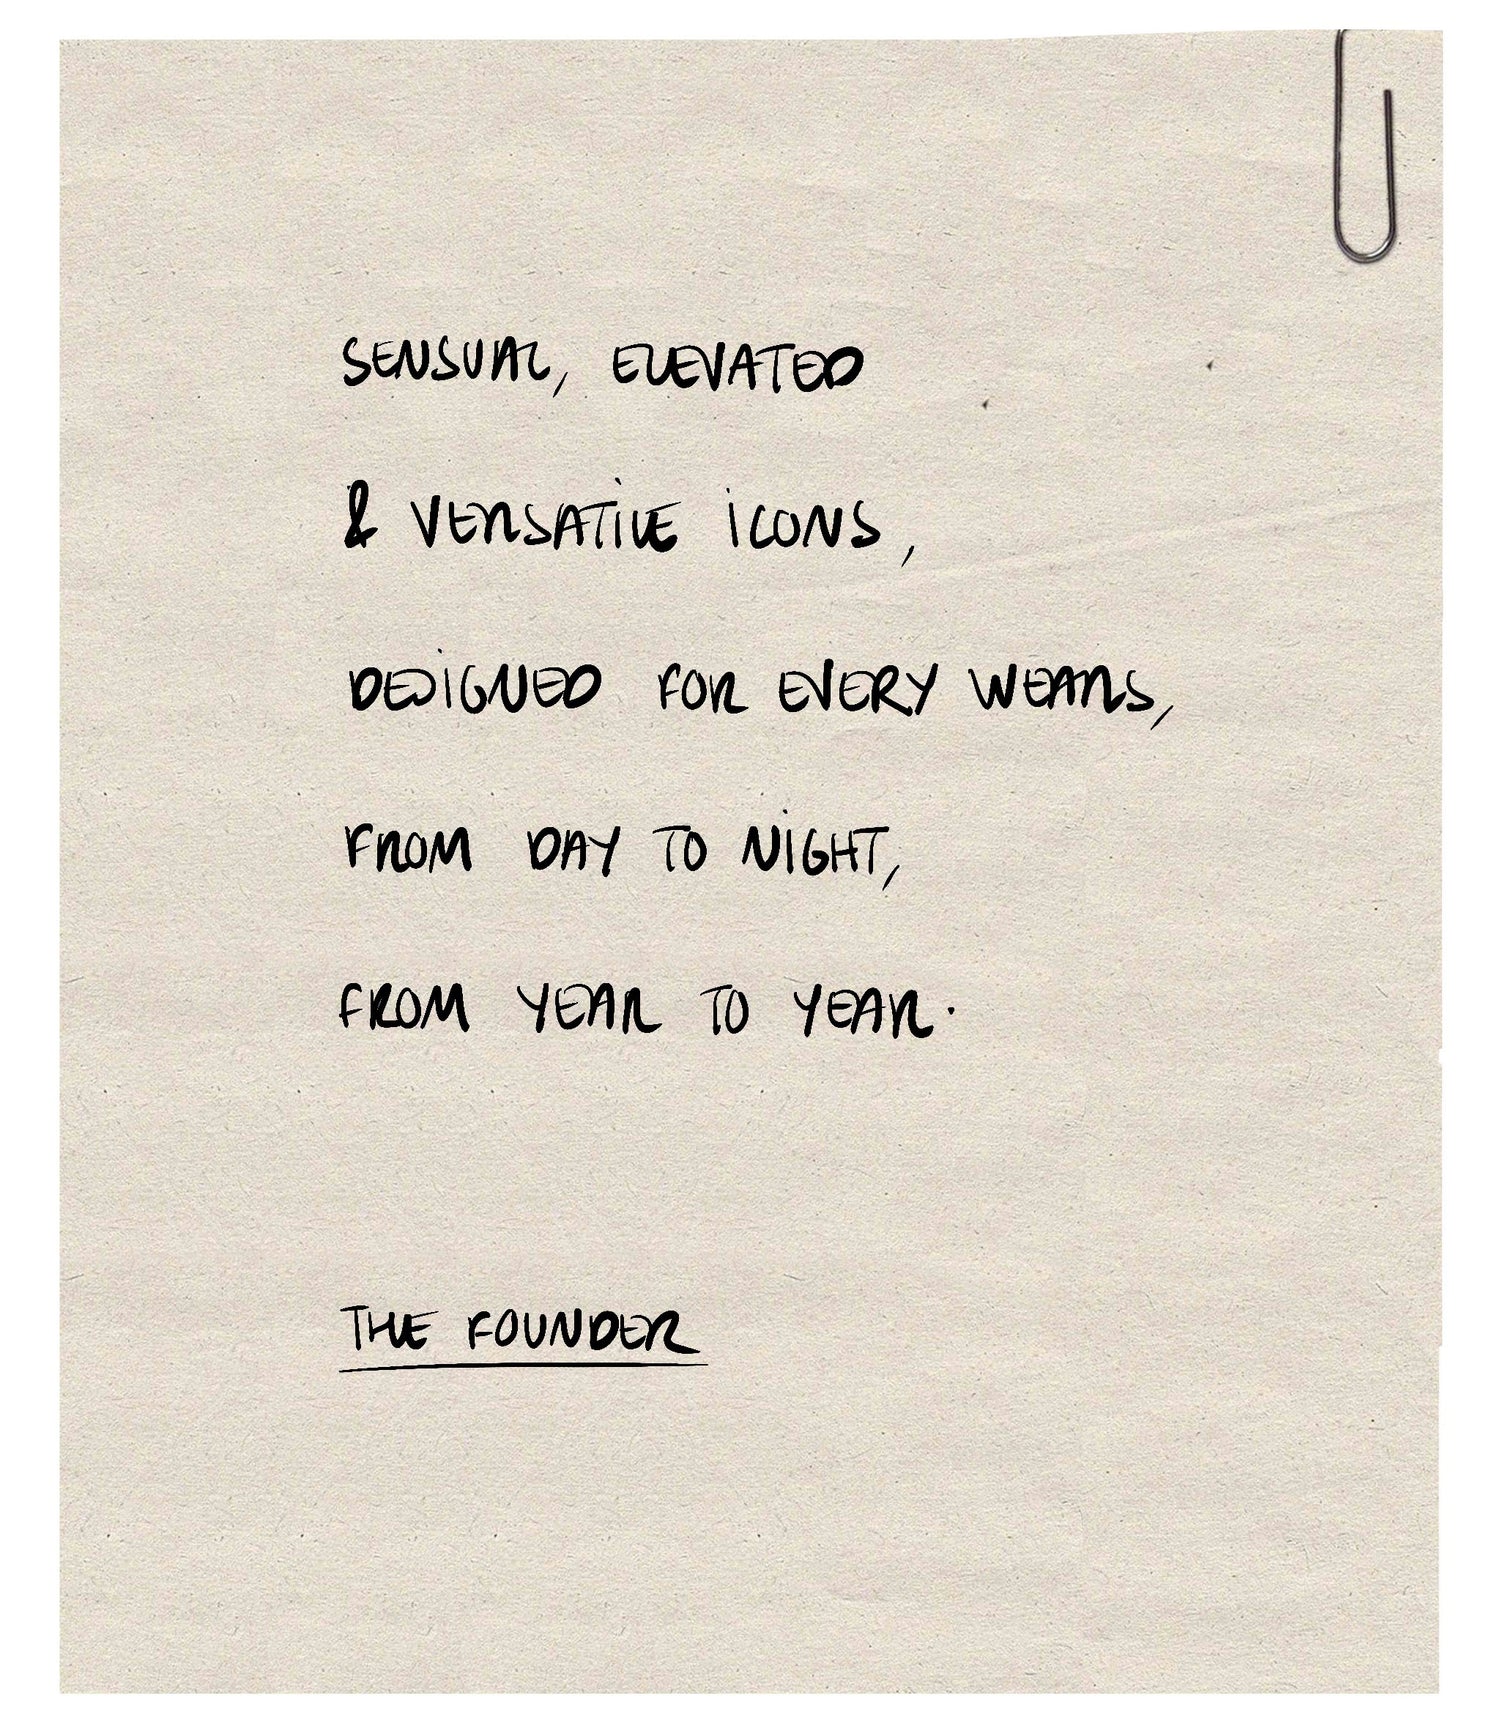 SENSUAL, ELEVATED
& VERSATILE ICONS,
DESIGNED FOR EVERY WEARS,
FROM DAY TO NIGHT,
FROM YEAR TO YEAR.
THE FOUNDER